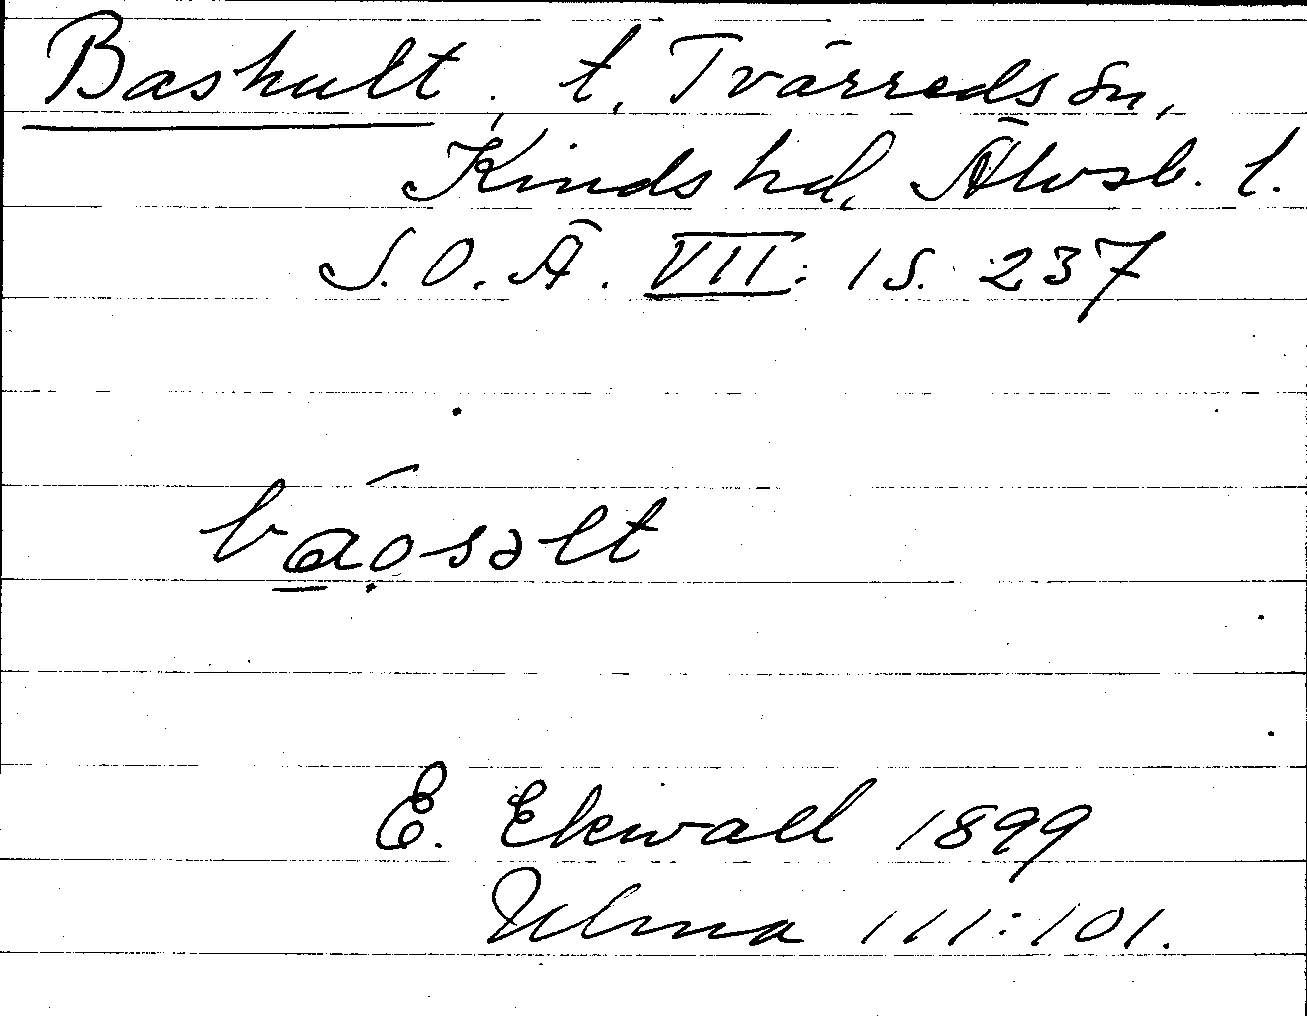 Bashult, t. Tvärreds sn,
Kinds hd, Älvsb. l.
S.O.Ä. VII: 1 S. 237
báọsəlt
E. Ekwall 1899
Ulma 111:101.